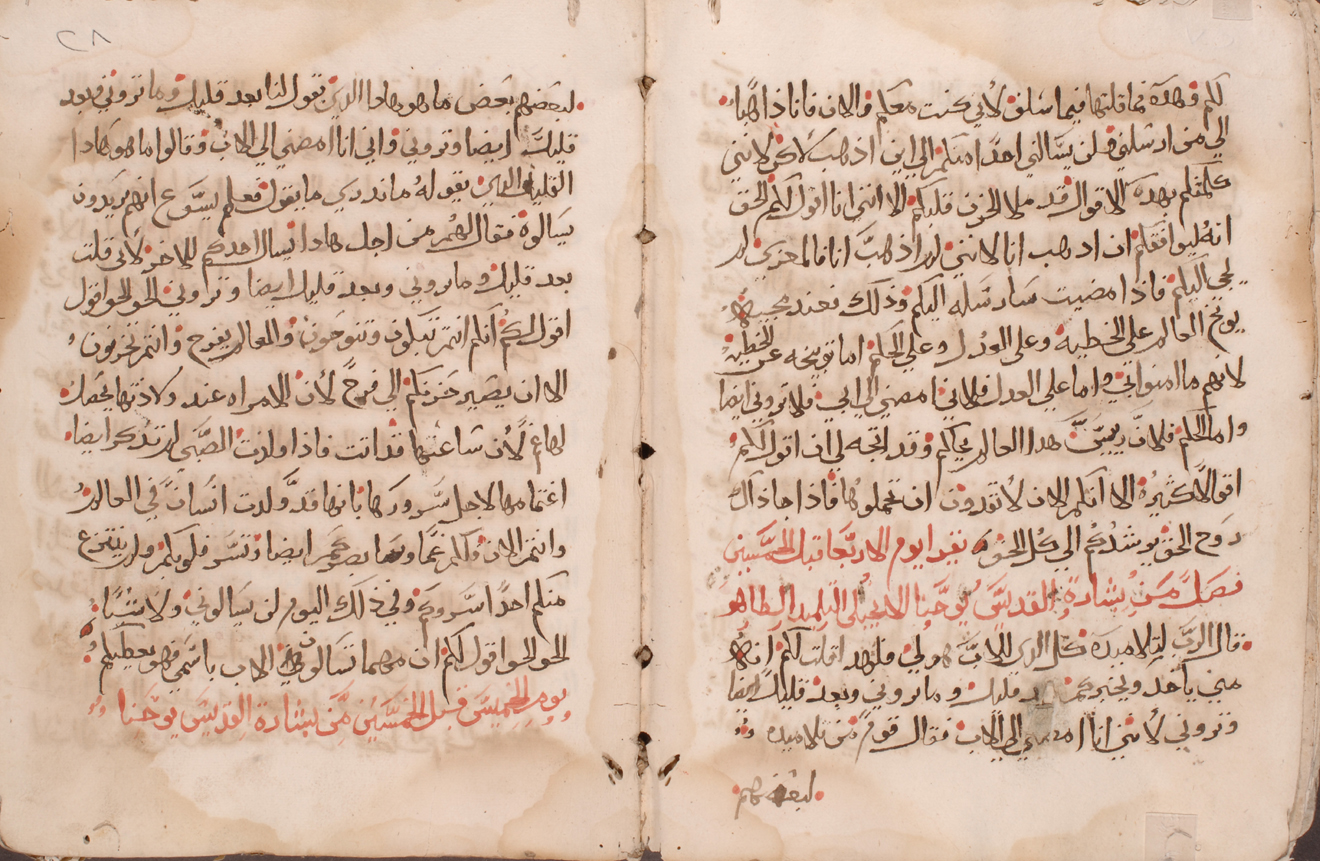 لكم وهده ما قلتها فيما سلف لأني كنت معكم والان فانا ذاهبًا
الي من ارسلني ولن يسالني احدًا منكم الي اين اذهب لاكن لانني
كلمتكم بهده الاقوال قد ملا الحزن قلبكم الا انني انا اقول لكم الحق
ان ادهب انا لانني ان لم اذهب انا فالمعزي لم
يجي اليكم فاذا مضيت سارسله اليكم وذلك فعند مجيه
يوبخ العالم على الخطيه وعلى العدل وعلي الحكم اما توبيخه عن الخطيه
لانهم ما امنوا بي واما علي العدل فلاني امضي الي ابي فلا تروني ايضا
واما الحكم فلان رييس هدا العالم يحكم وقد اتجه لي ان اقول لكم
اقوالا كثيره الا انكم الان لا تقدرون ان تحملوها فاذا جا ذاك
روح الحق يرشدكم الي كل الحق يقرا يوم الاربعا قبل الخمسين
فصل من بشارة القديس يوحنا الانجيلي التلميد الطاهر
قال الرب لتلاميده كل الدي للاب هو لي فلهدا قلت لكم انه
مني ياخد ويخبركم قليل وما تروني وبعد قليل ايضا
وتروني لأنني انا امضي الي الاب فقال قوم من تلاميده
لبعضهم
٢٨
لبعضهم بعض ما هو هادا الدي يقول لنا بعد قليل وما تروني وبعد
قليل ايضا وتروني واني انا امضي الي الاب وقالوا ما هو هادا
القليل الدي يقوله ما ندري ما يقول فعلم يسوع انهم يريدون
يسالوه فقال لهم من اجل هادا يسال احدكم للاخر لأني قلت
بعد قليل وما تروني وبعد قليل ايضا وتروني الحق الحق اقول
اقول لكم انكم انتم تبكون وتنوحون والعالم يفرح وانتم تحزنون
الا ان يصير حزنكم الي فرحً لأن الامراه عند ولادتها يحصل
لها غم لأن ساعتها قد اتت فاذا ولدت الصبي لم تذكر ايضا
اغتمامها لاجل سرورها بانها قد ولدت انسانً في العالم
وانتم الان ولكم غما ايضا وتسر قلوبكم ولم ينتزع
منكم احدًا سروركم وفي ذلك اليوم لن تسالوني ولا شيًا
الحق الحق اقول لكم ان مهما تسالون الاب باسمي فهو يعطيكم
يوم الخميس قبل الخمسين من بشارة القديس يوحنا